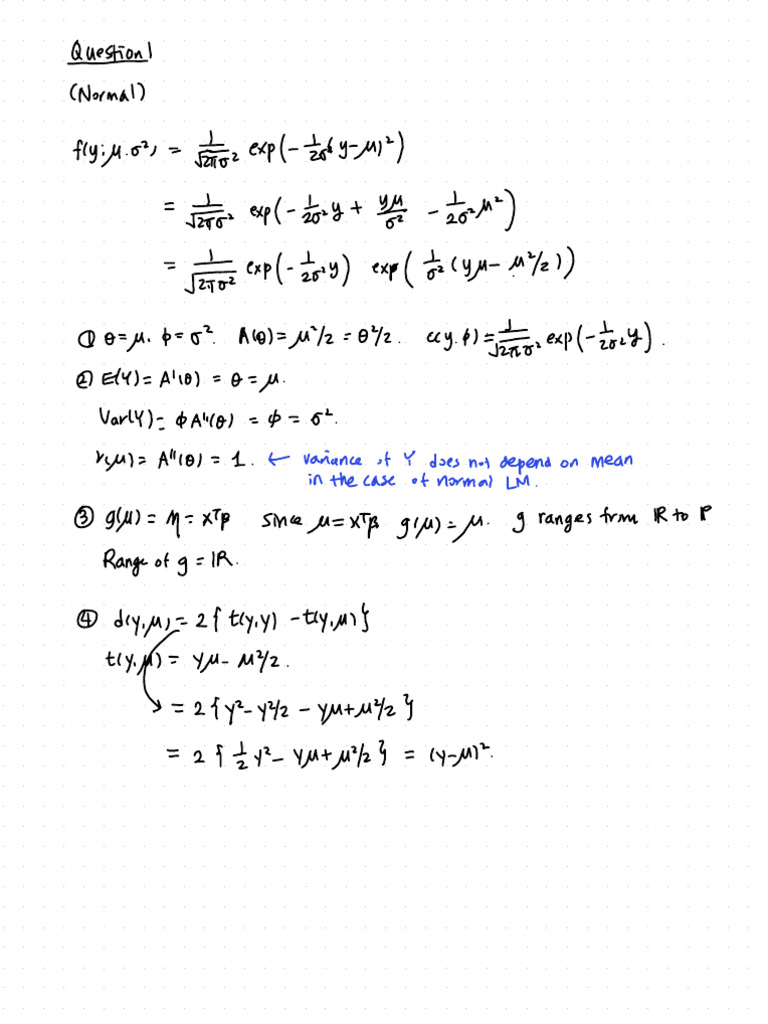 Question 1
(Normal)
f(y; μ, σ²) = 1/√2πσ² exp(-1/2σ²(y-μ)²)
= 1/√2πσ² exp(-1/2σ² y + yμ/σ² - 1/2σ² μ²)
= 1/√2πσ² exp(-1/2σ² y) exp(1/σ² (yμ - μ²/2))
① θ=μ. φ=σ². A(θ)=μ²/2 = θ²/2. c(y.φ)=1/√2πσ² exp(-1/2σ² y).
② E(Y)= A'(θ) = θ = μ.
Var(Y)= φA''(θ) = φ = σ².
V(μ)= A''(θ) = 1. ← variance of Y does not depend on mean
in the case of normal LM.
③ g(μ) = η = xᵀβ since μ=xᵀβ g(μ)=μ. g ranges from ℝ to ℝ
Range of g = ℝ.
④ d(y,μ) = 2{ t(y,y) - t(y,μ)}
t(y,μ) = yμ - μ²/2.
= 2{y² - y²/2 - yμ + μ²/2}
= 2{1/2 y² - yμ + μ²/2} = (y-μ)².